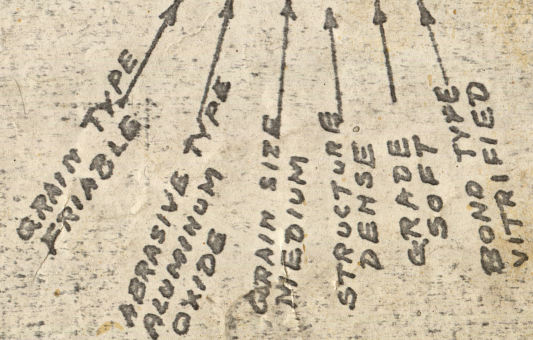 GRAIN TYPE
FRIABLE
ABRASIVE TYPE
ALUMINUM
OXIDE
GRAIN SIZE
MEDIUM
STRUCTURE
DENSE
GRADE
SOFT
BOND TYPE
VITRIFIED